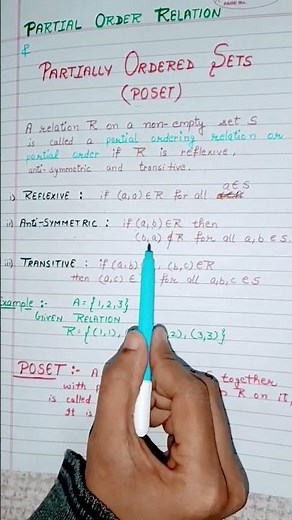 PARTIAL ORDER RELATION
&
PARTIALLY ORDERED SETS
(POSET)
A relation R on a non-empty set S
is called a partial ordering relation or
partial order if R is reflexive,
anti-symmetric and transitive.
a∈S
i) REFLEXIVE : if (a,a)∈R for all
ii) ANTI-SYMMETRIC : if (a,b)∈R then
(b,a) ∉ R for all a,b∈S
iii) TRANSITIVE : if (a,b) , (b,c)∈R
then (a,c)∈ for all a,b,c∈S
Example :- A={1,2,3}
GIVEN RELATION
R={(1,1), ,2), (3,3)}
POSET :- A together
with R on it,
is called
It is